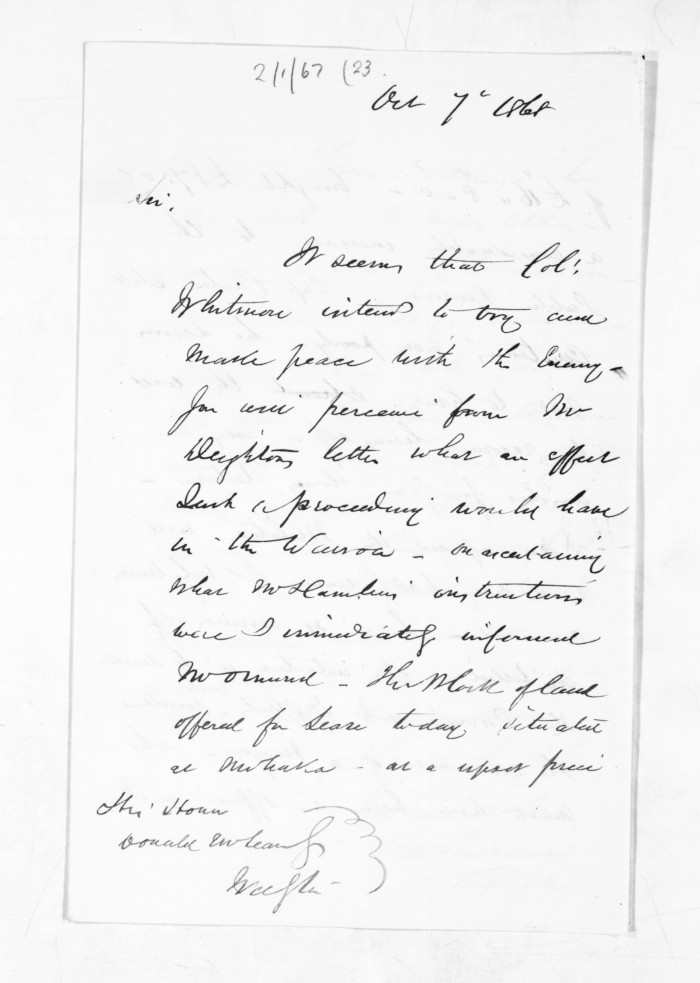 2/1/67 (23.
Oct 7th 1868
Sir,
It seems that Col!
Whitmore intend to try and
make peace with the Enemy -
You will perceive from Mr
Deightons letter what an effect
Such a proceeding would have
in the Wairoa - on ascertaining
what Mr Hamlins instructions
were I immediately informed
Mr Ormond - The Block of land
offered for Lease today, situated
at Mohaka - at a upset price
His Honor
Donald McLean
Wellgtn -